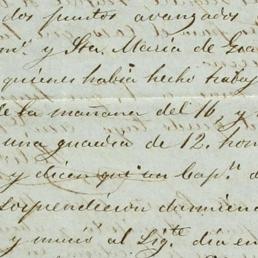 dos puntos avanzados
y Sta. Maria de
quienes habia hecho
de la mañana del 16, y
una guardia de 12. hom
y dicen que un Capⁿ. d
sorprendieron durmien
y murió al Sigᵗᵉ. dia en